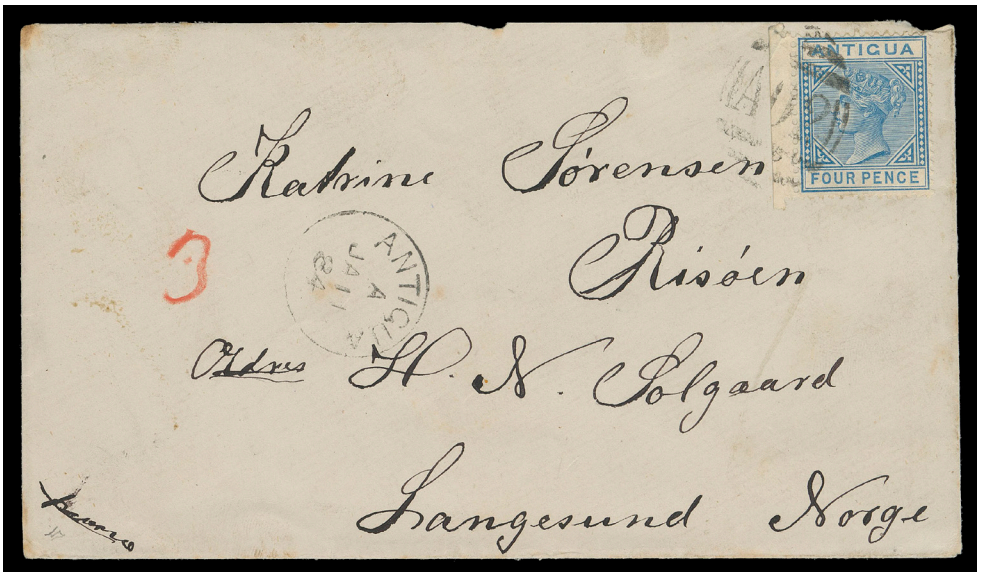 ANTIGUA
FOUR PENCE
A02
Katrine Sørensen
Risóen
3
ANTIGUA
A
JA 11
84
Adres H. N. Solgaard
Langesund Norge